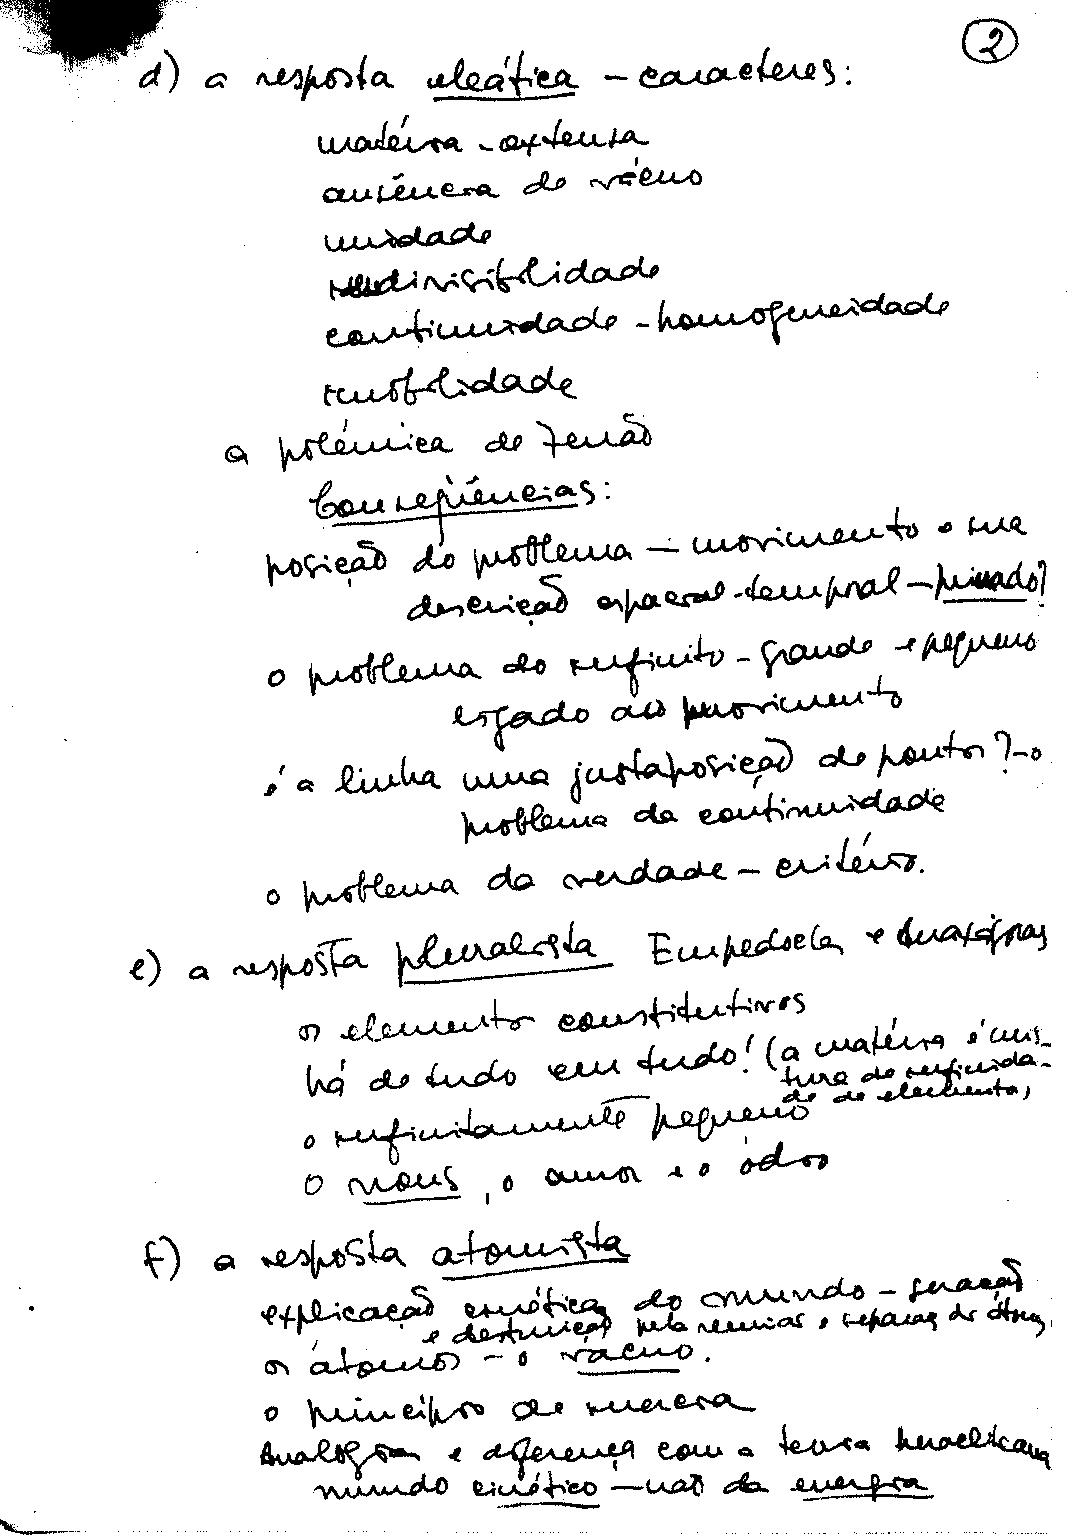 2
d) a resposta eleática - caracteres:
matéria - extensa
ausência de vácuo
unidade
indivisibilidade
continuidade - homogeneidade
imobilidade
a polémica de Zenão
Conseqüências:
posição do problema - movimento e sua
descrição espacial-temporal -
o problema do infinito - grande e pequeno
ligado ao movimento
é a linha uma justaposição de pontos? - o
problema da continuidade
o problema da verdade - critério.
e) a resposta pluralista Empedocles e Anaxágoras
os elementos constitutivos
há de tudo em tudo! (a matéria é mis-
tura de infinida-
de de elementos,
o infinitamente pequeno
O nous, o amor e o ódio
f) a resposta atomista
explicação cinética do mundo - geração
e destruição pela reunião e separação dos átomos,
os átomos - o vácuo.
o princípio de inércia
Analogia e diferença com a teoria heracliteana
mundo cinético - não da energia